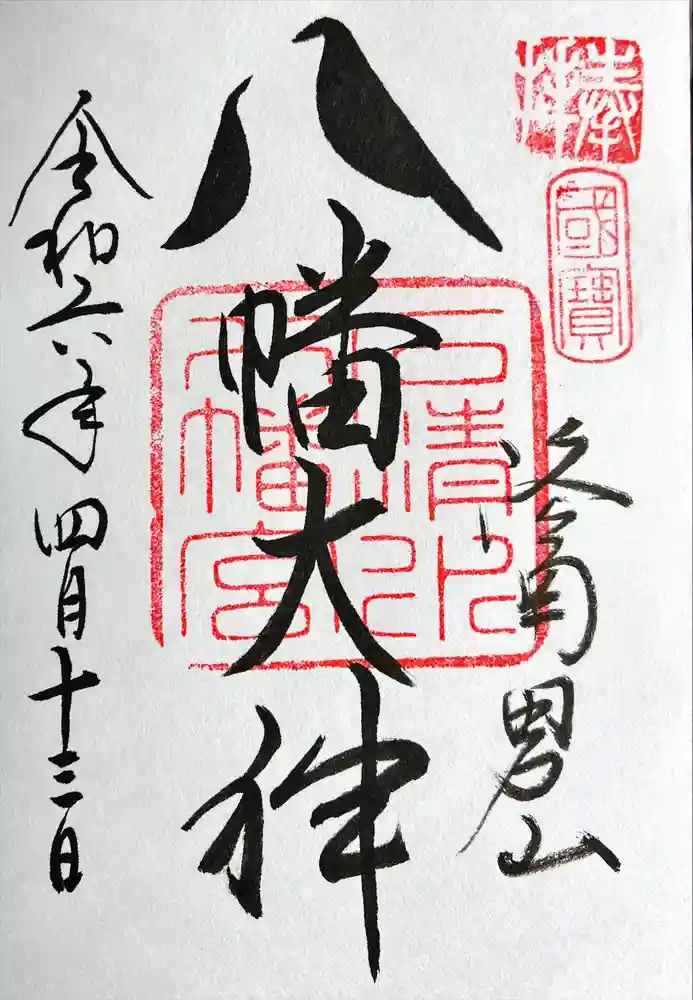 奉拝
國寳
洛南男山
八幡大神
石清水
八幡宮
令和六年四月十三日